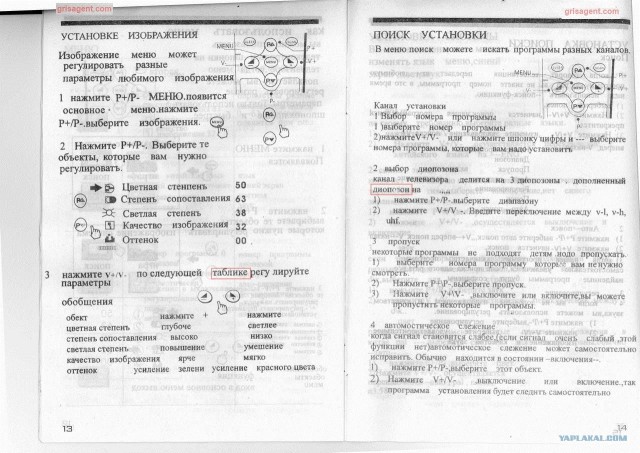 grisagent.com
УСТАНОВКЕ ИЗОБРАЖЕНИЯ
Изображение меню может
регулировать разные
параметры любимого изображения
MENU
P+
V-
1 нажмите P+/P- МЕНЮ.появится
основное меню.нажмите
P+/P-.выберите изображения.
2 Нажмите P+/P-. Выберите те
объекты, которые вам нужно
регулировать.
Цветная стенпень 50
Степень сопоставления 63
Светлая степень 38
Качество изображения 32
Оттенок 00
3 нажмите V+/V- по следующей таблике регулируйте
параметры
обобщения
обект нажмите + нажмите
цветная степень глубоче светлее
степень сопоставления высоко низко
светлая степень повышение умешение
качество изображения ярче мягко
оттенок усиление зелени усиление красного цвета
13
grisagent.com
ПОИСК УСТАНОВКИ
В меню поиск можете искать программы разных каналов
MENU
Канал установки
1 Выбор номера программы
1 )выберите номер программы
2)нажмитеV+/V- или нажмите шпонку цифры и -- выберите
номера программы, которые вам надо установить
2 выбор диопазона
канал телевизора делится на 3 диопазоны , дополненный
диопозон на
1) нажмите P+/P-.выберите диапазону
2) нажмите V+/V - . Введите переключение между v-l, v-h,
uhf.
3 пропуск
некоторые программы не подходят детям ,надо пропускать.
1) выберите номера программу которые вам не нужно
смотреть.
2) Нажмите P+/P-.выберите пропуск.
3) Нажмите V+\V- ,выключите или включите,вы можете
пропустить некоторые программы.
4 автомостическое слежение
когда сигнал становится слабее,(если сигнал очень слабый ,этой
функции нет)автомостическое слежение может самостоятельно
исправить. Обычно находится в состоянии –включения–.
1) нажмите P+/P-.выберите этот объект.
2) Нажмите V+/V- ,выключение или включение.,так
программа установления будет следить самостоятельно
14
YAPLAKAL.COM